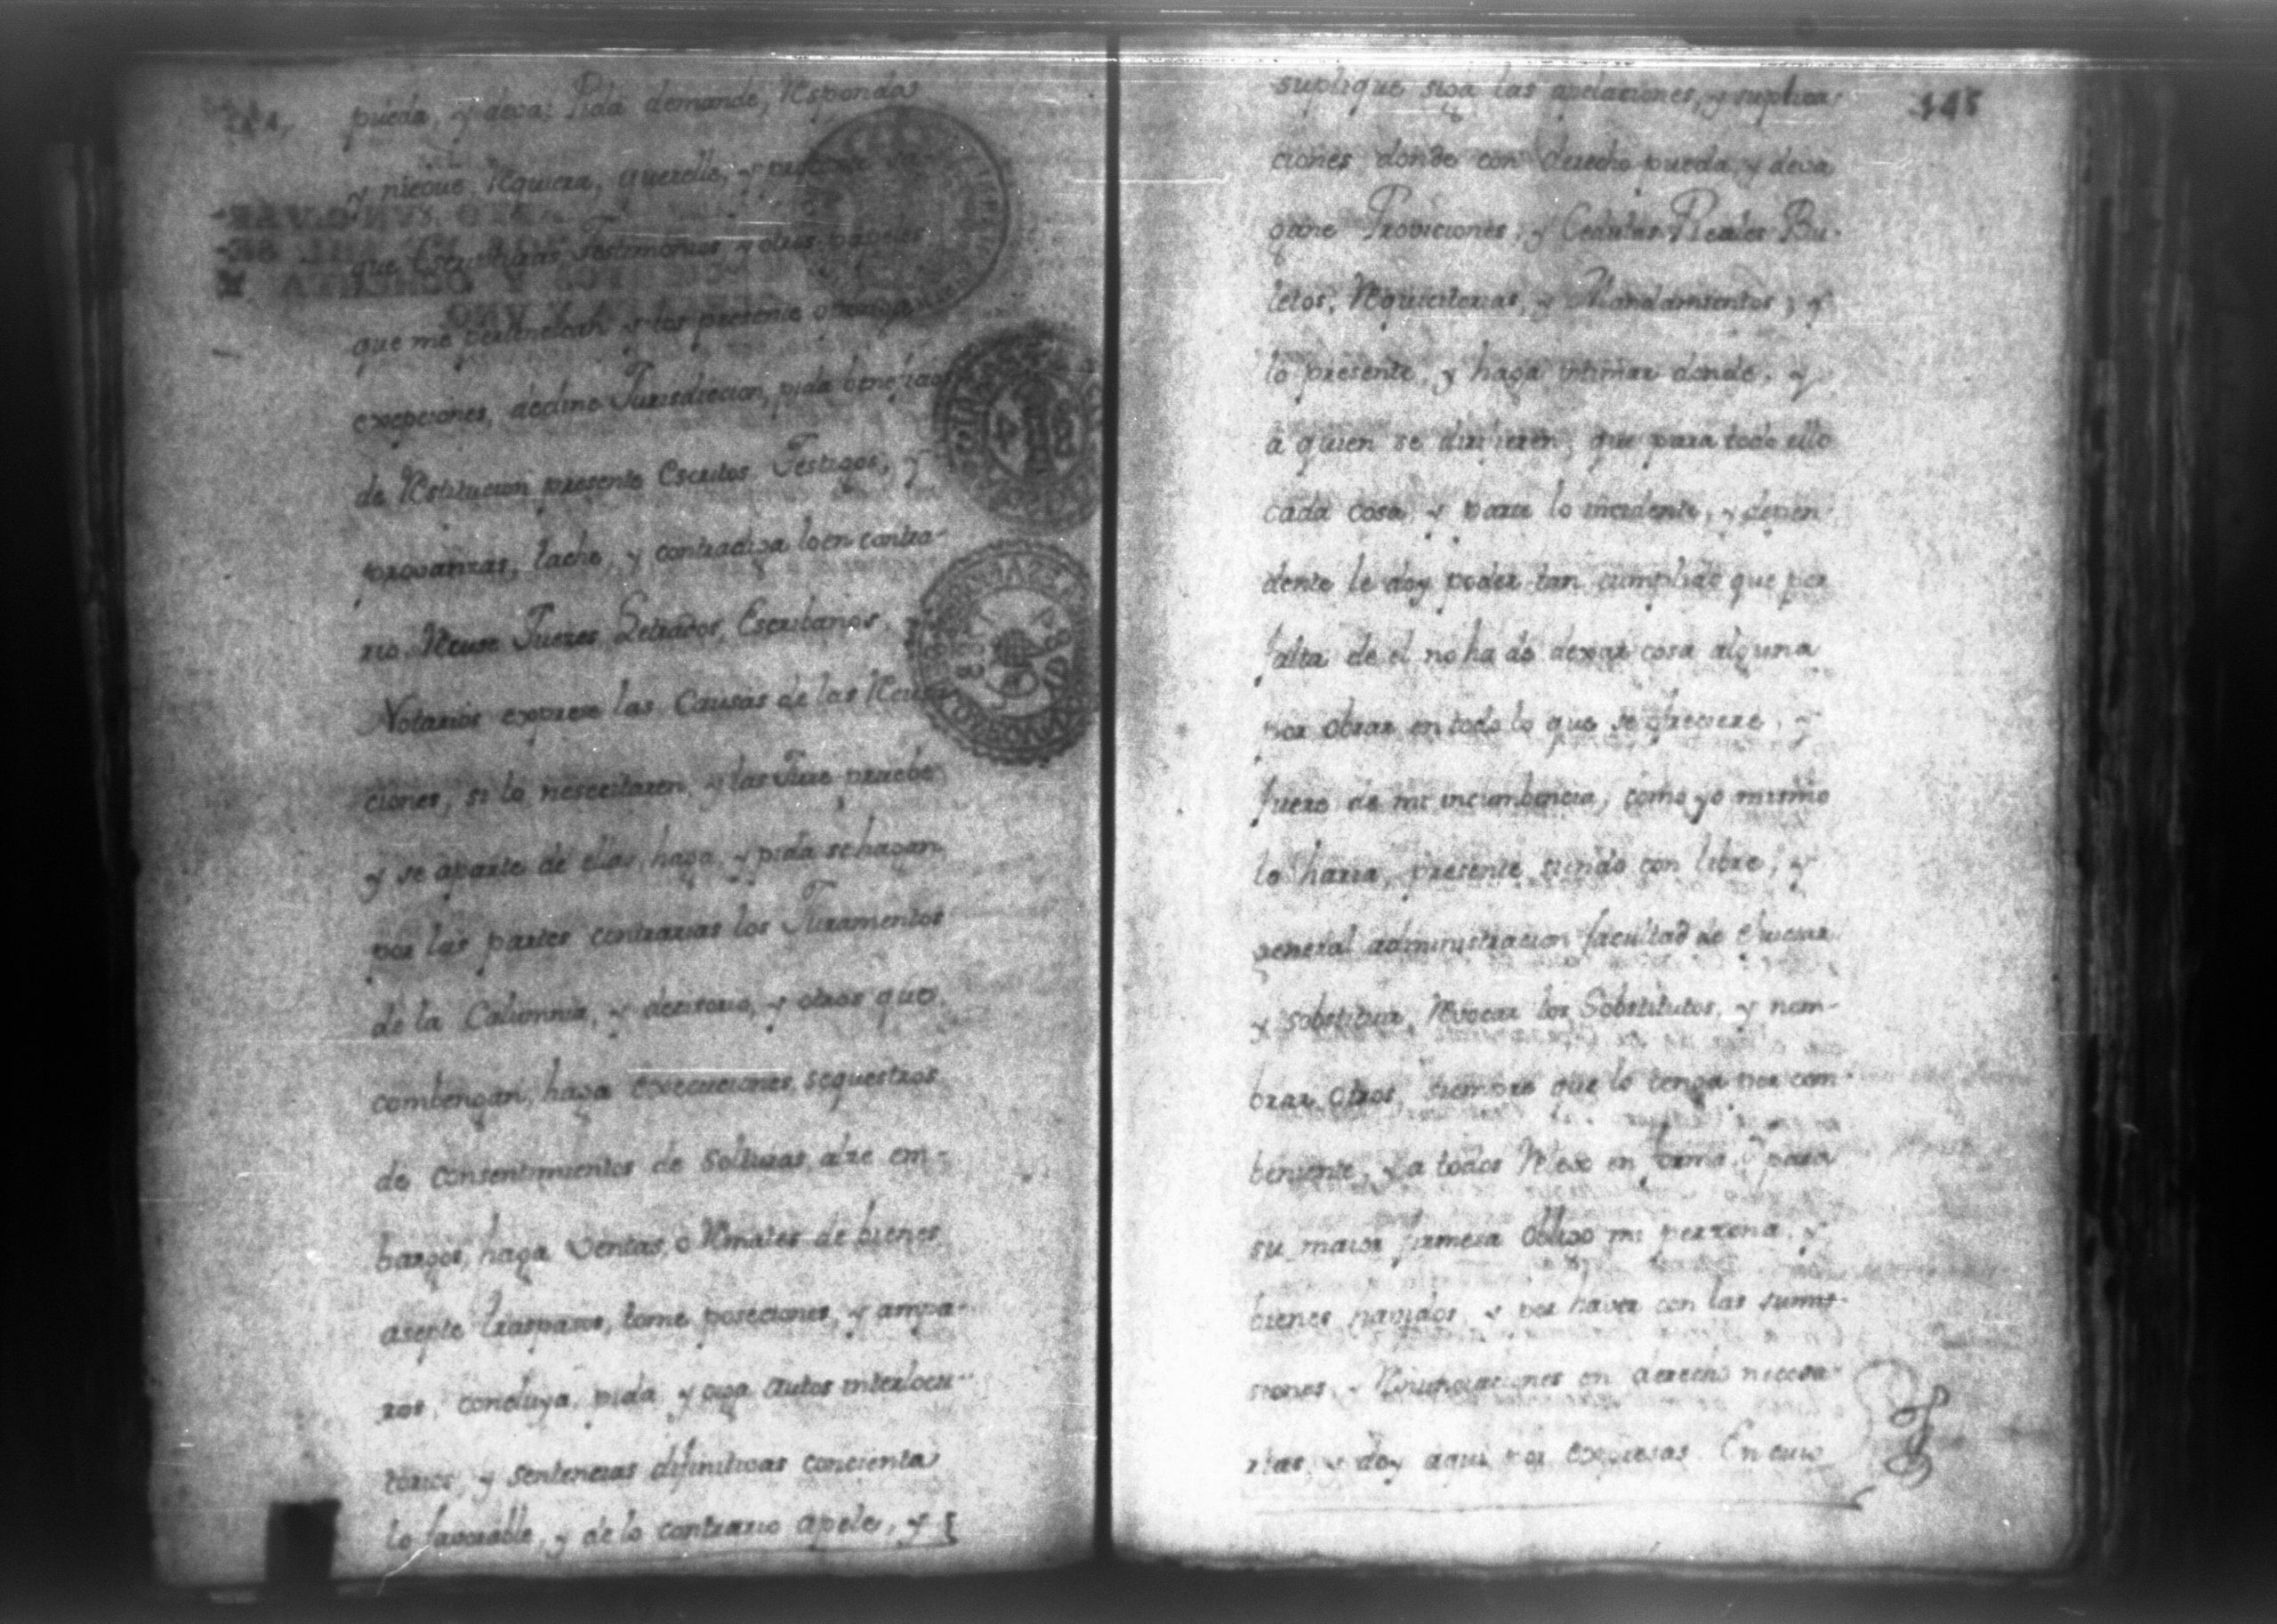 pueda, y deva: Pida demande, Responda
y niegue, Requiera, querelle, y proteste sa-
que Escripturas, Testimonios y otros papeles
que me pertenescan y los presente oponga
excepciones, decline Jurisdiccion, pida beneficios
de Restitucion presente Escritos Testigos, y
provanzas, tache, y contradiga lo en contra-
rio, Recuse Juezes, Letrados, Escribanos,
Notarios exprese las Causas de las Recusa
ciones, si lo nescecitaren, y las Jure pruebe
y se aparte de ellas, haga, y pida se hagan
por las partes contrarias los Juramentos
de la Calumnia, y decisorio, y otros que
combengan, haga execuciones, sequestros
de consentimientos de Solturas, alze em-
bargos, haga Ventas, o Remates de bienes
asepte traspasos, tome poseciones, y ampa-
ros, concluya, pida, y oiga Autos interlocu-
torios, y sentencias difinitivas concienta
lo favorable, y de lo contrario apele, y
145
suplique siga las apelaciones, y suplica-
ciones donde con derecho pueda, y deva
gane Proviciones, y Cedulas Reales Bu-
letos, Requicitorias, y Mandamientos, y
lo presente, y haga intimar donde, y
a quien se dirijieren, que para todo ello
cada cosa, y parte lo incidente, y depen-
dente le doy poder tan cumplido que por
falta de el no ha de dexar cosa alguna
por obrar en todo lo que se ofreciere, y
fuere de mi incumbencia, como yo mismo
lo haria, presente siendo con libre, y
general administracion facultad de enjuiciar
y sobstituir, Revocar los Sobstitutos, y nom-
brar otros, siempre que lo tenga por com-
beniente, y a todos Relevo en forma. Y para
su maior firmesa Obligo mi perzona, y
bienes havidos, y por haver con las sumi-
siones, y Renunciaciones en derecho necesa-
rias, y doy aqui por expresas. En cuio